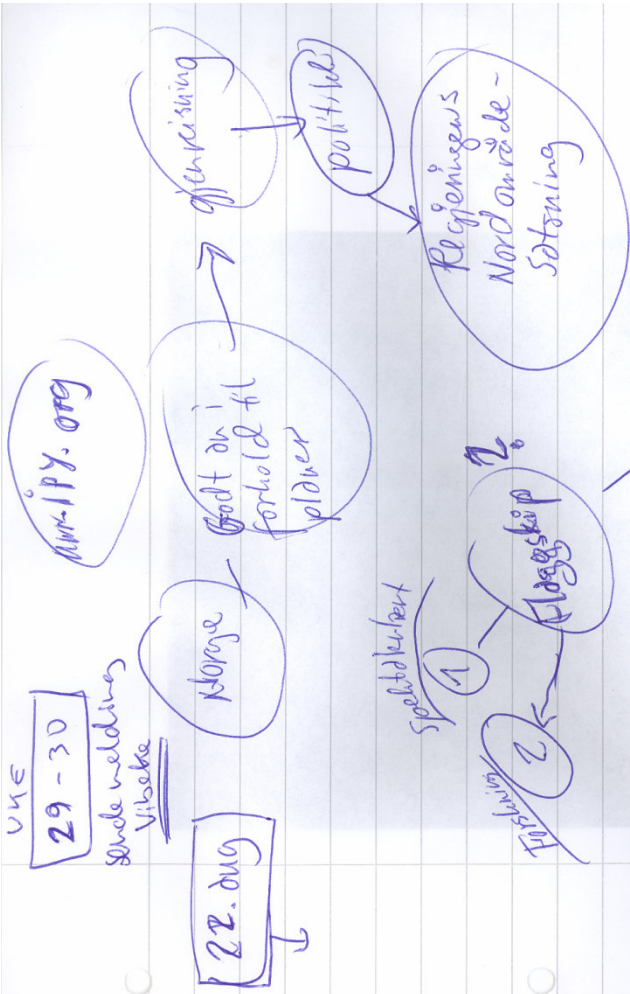 UKE
29-30
sende melding
Vibeke
22. aug
www.ipy.org
Norge
Godt an i
forhold til
planer
gjenreisning
politikk
Regjeringens
Nordområde-
satsning
Spektakulært
1
Flaggskip
?
Forskning
2